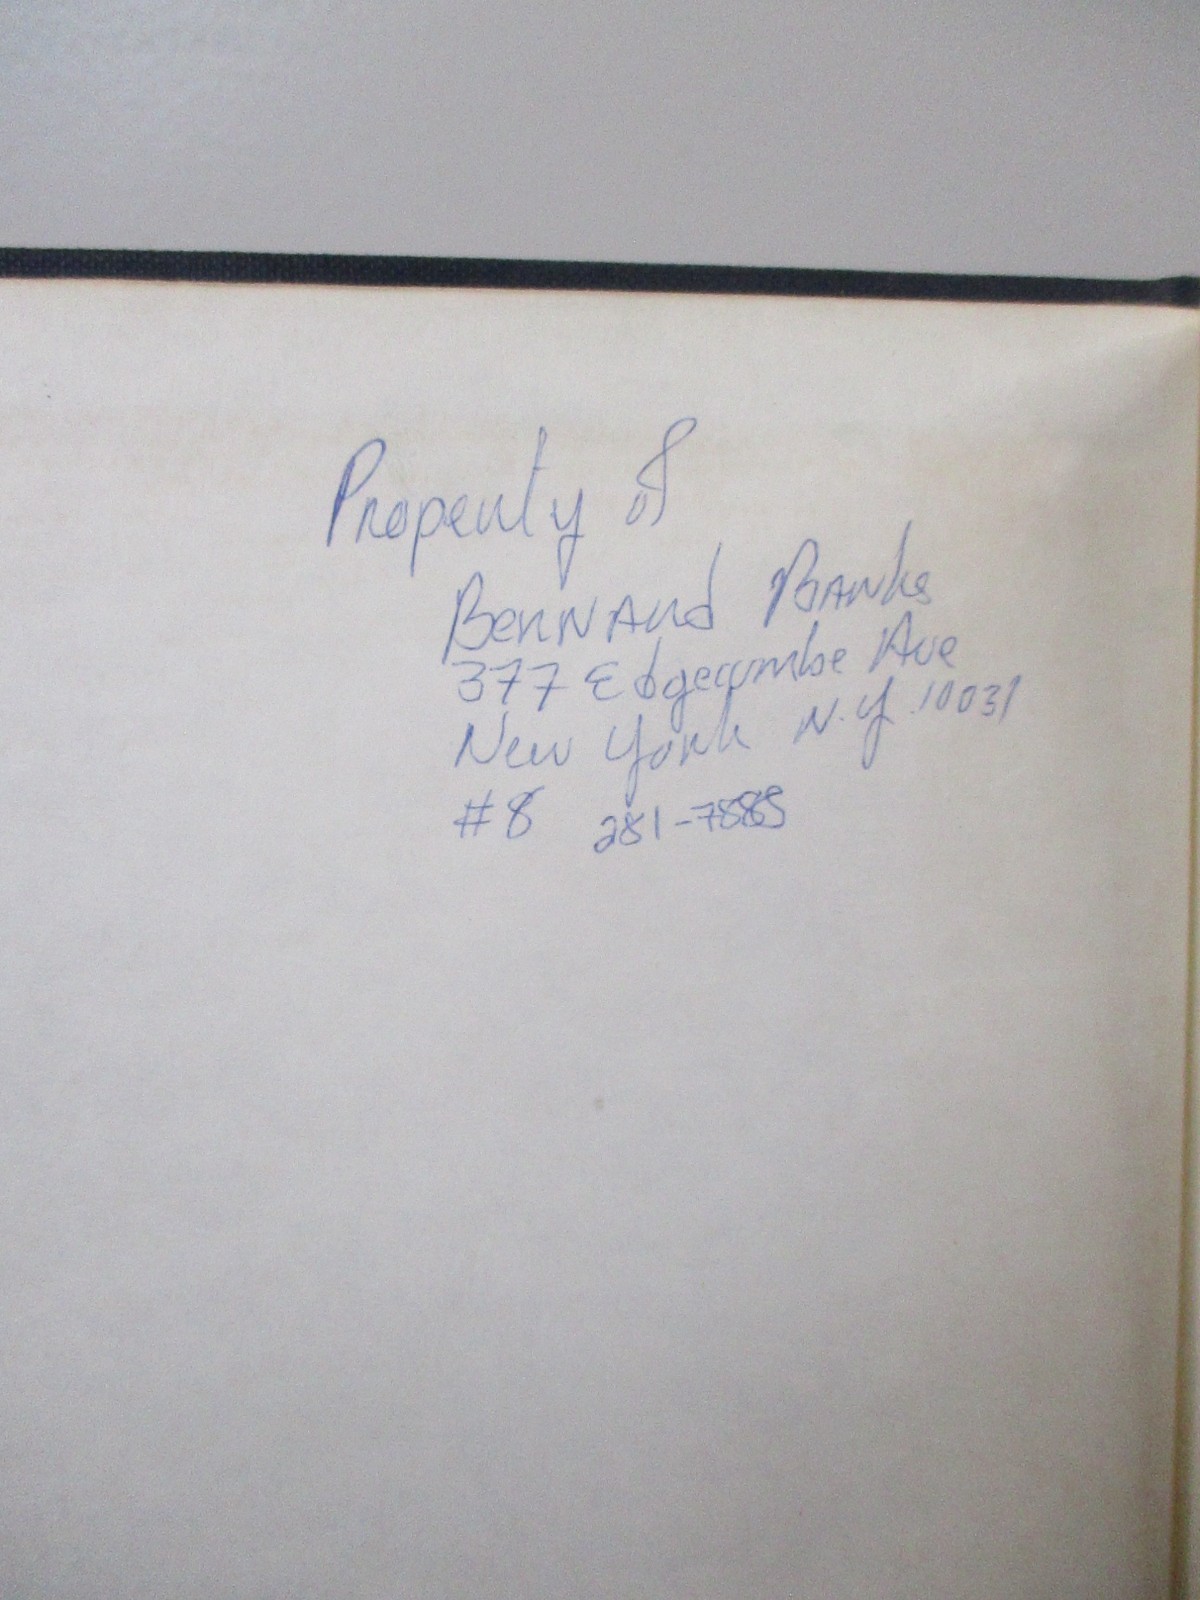 Property of
Bernard Banks
377 Edgecombe Ave
New York N.Y. 10031
#8 281-7885